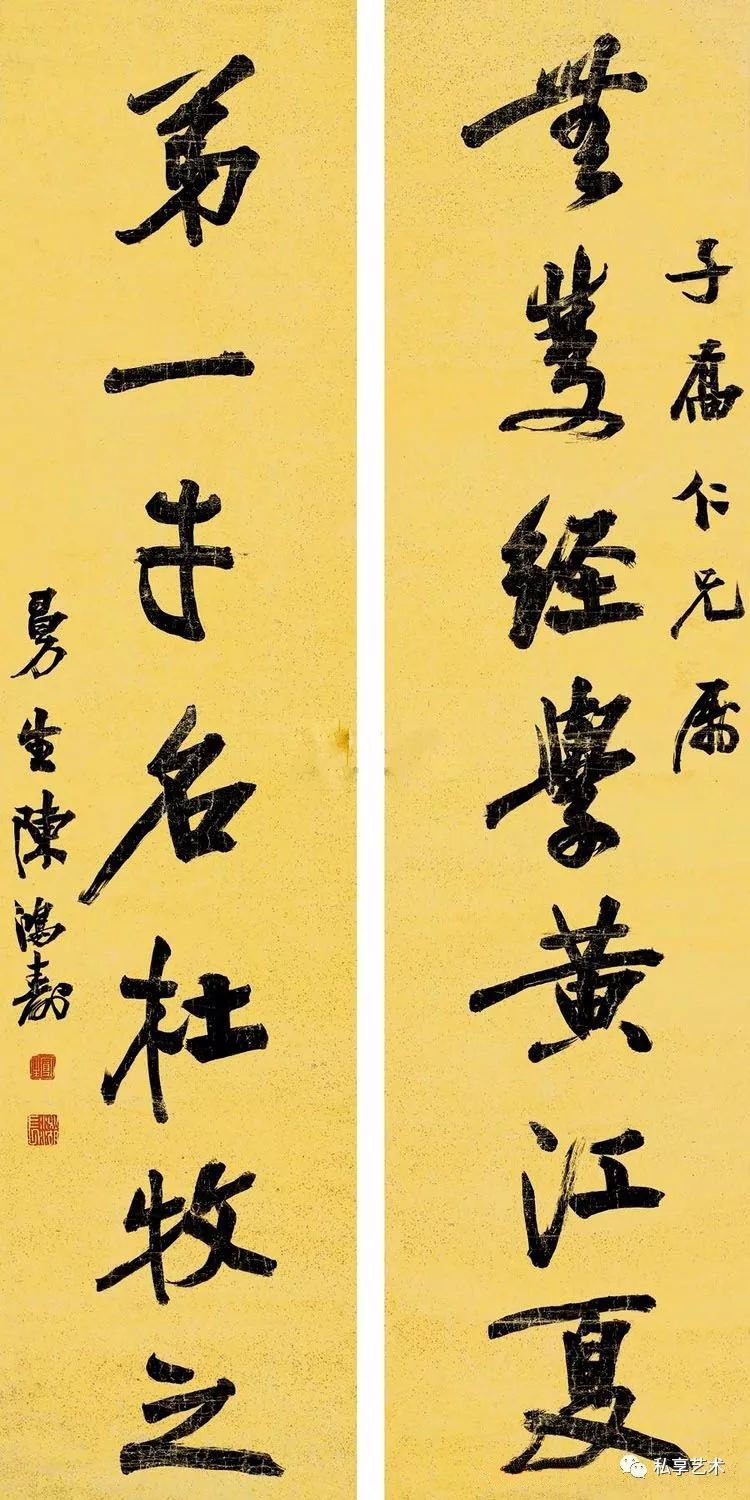 子仁兄属
無雙經學黃江夏
第一才名杜牧之
曼生陳鴻壽
私享艺术